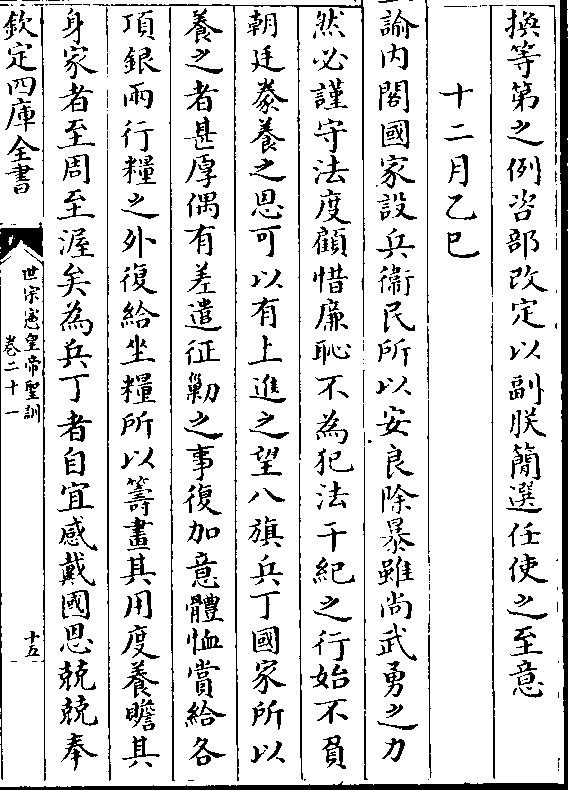 撰等第之例咨部改定以副朕簡選任使之至意
十二月乙巳
諭内閣國家設兵衞民所以安良除暴雖尚武勇之力
然必謹守法度顧惜廉恥不為犯法干紀之行始不負
朝廷豢養之恩可以有上進之望八旗兵丁國家所以
養之者甚厚偶有差遣征勦之事復加意體恤賞給各
項銀兩行糧之外復給坐糧所以籌畫其用度養贍其
身家者至周至渥矣為兵丁者自宜感戴國恩兢兢奉
欽定四庫全書
世宗憲皇帝聖訓
卷二十一
十五